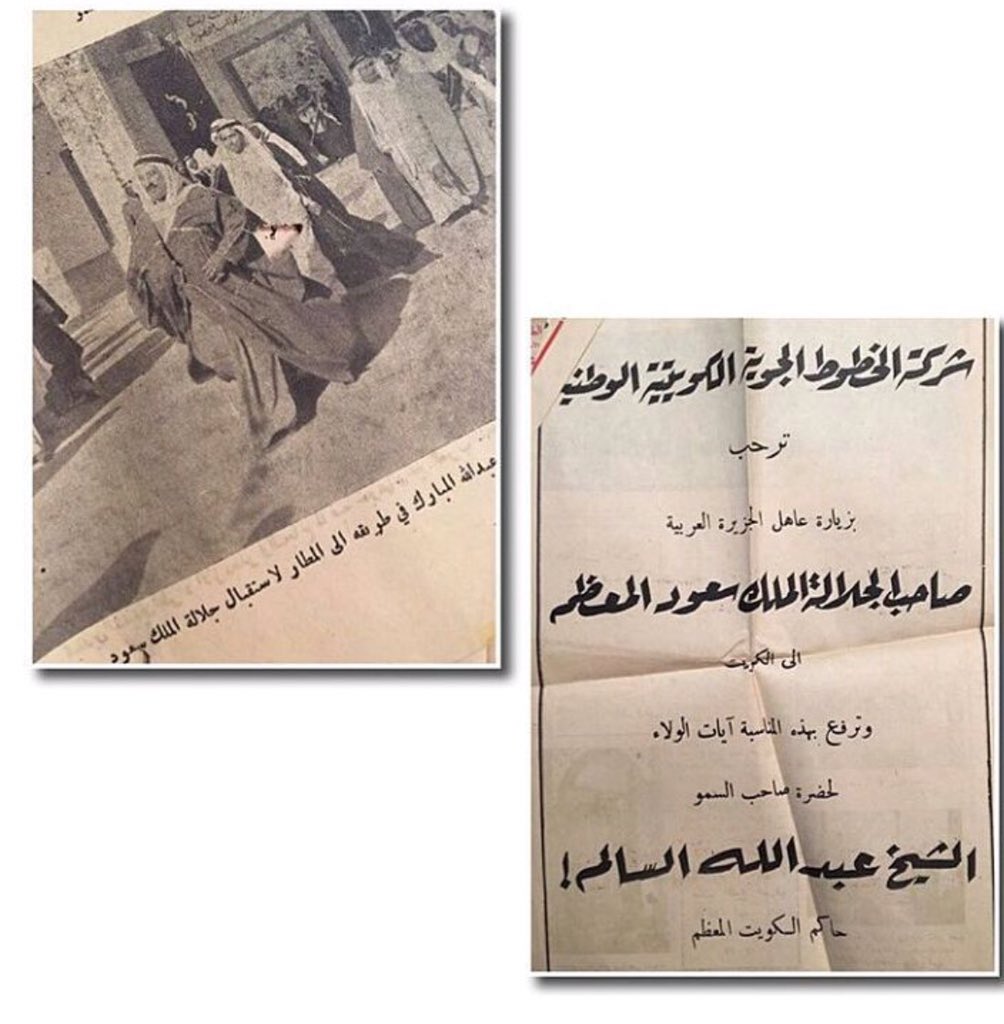 عبدالله المبارك في طريقه الى المطار لاستقبال جلالة الملك سعود
شركة الخطوط الجوية الكويتية الوطنية
ترحب
بزيارة عاهل الجزيرة العربية
صاحب الجلالة الملك سعود المعظم
الى الكويت
وترفع بهذه المناسبة آيات الولاء
لحضرة صاحب السمو
الشيخ عبد الله السالم!
حاكم الكويت المعظم